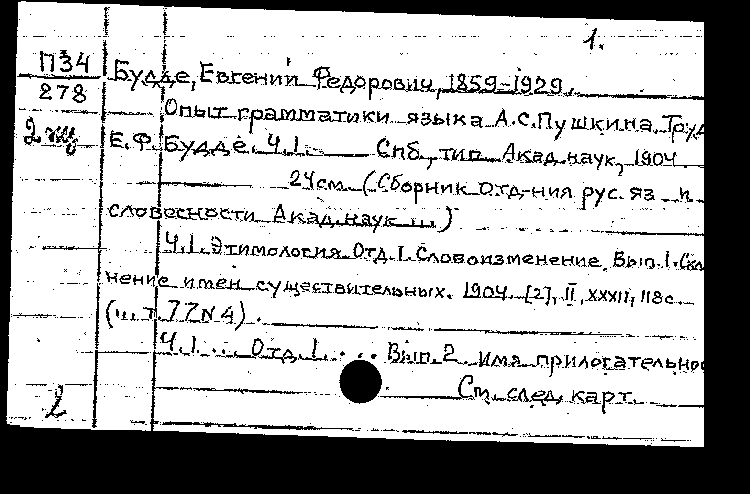 1.
П34
278
2 экз
Будде, Евгений Федорович, 1859-1929.
Опыт грамматики языка А.С.Пушкина. Труд
Е.Ф. Будде. Ч.1.- Спб., тип. Акад. наук, 1904.
24см. (Сборник отд-ния рус. яз. и
словесности Акад. наук ...)
Ч.1. Этимология. Отд.1. Словоизменение. Вып.1. Скл
нение имен существительных. 1904. [2], II, XXXII, 118с.
(... т.77 N4).
Ч.1 ... Отд.1. ... Вып.2. Имя прилогательно
См. след. карт.
2